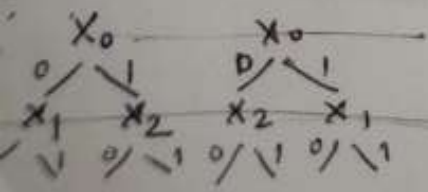 X₀ X₀
0 1 0 1
X₁ X₂ X₂ X₁
1 0 1 0 1 0 1